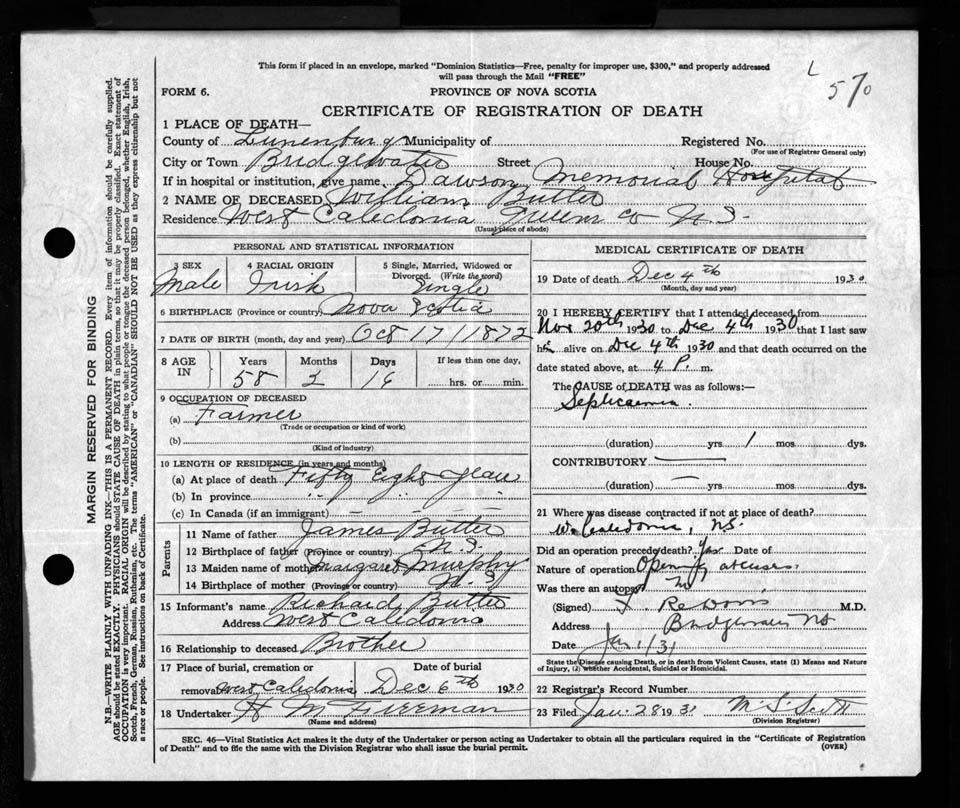 This form if placed in an envelope, marked "Dominion Statistics—Free, penalty for improper use, $300," and properly addressed
will pass through the Mail "FREE"
L 570
FORM 6.
PROVINCE OF NOVA SCOTIA
CERTIFICATE OF REGISTRATION OF DEATH
1 PLACE OF DEATH—
County of Lunenburg Municipality of Registered No.
(For use of Registrar General only)
City or Town Bridgewater Street House No.
If in hospital or institution, give name Dawson Memorial Hospital
2 NAME OF DECEASED William Butler
Residence West Caledonia Queens Co N.S.
(Usual place of abode)
PERSONAL AND STATISTICAL INFORMATION
3 SEX
4 RACIAL ORIGIN
5 Single, Married, Widowed or
Divorced. (Write the word)
Male Irish Single
6 BIRTHPLACE (Province or country) Nova Scotia
7 DATE OF BIRTH (month, day and year) Oct 17/1872
8 AGE IN
Years Months Days If less than one day,
58 16 hrs. or min.
9 OCCUPATION OF DECEASED
(a) Farmer
(Trade or occupation or kind of work)
(b)
(Kind of industry)
10 LENGTH OF RESIDENCE (in years and months)
(a) At place of death Fifty Eight Years
(b) In province " " "
(c) In Canada (if an immigrant)
Parents
11 Name of father James Butler
12 Birthplace of father (Province or country) N.S.
13 Maiden name of mother Margaret Murphy
14 Birthplace of mother (Province or country) N.S
15 Informant's name Richard Butler
Address West Caledonia
16 Relationship to deceased Brother
17 Place of burial, cremation or Date of burial
removal West Caledonia Dec 6th 1930
18 Undertaker H M Freeman
(Name and address)
MEDICAL CERTIFICATE OF DEATH
19 Date of death Dec 4th 1930
(Month, day and year)
20 I HEREBY CERTIFY that I attended deceased from
Nov 20th 1930 to Dec 4th 1930 that I last saw
him alive on Dec 4th 1930 and that death occurred on the
date stated above, at 4 P. m.
The CAUSE of DEATH was as follows:—
Septicaemia.
(duration) yrs 1 mos dys.
CONTRIBUTORY —
(duration) — yrs. mos. dys.
21 Where was disease contracted if not at place of death?
W. Caledonia, N.S.
Did an operation precede death? Yes Date of
Nature of operation Opening abcesses
Was there an autopsy? No
(Signed) M.D.
Address Bridgewater NS
Date Jan 1/31
State the Disease causing Death, or in death from Violent Causes, state (1) Means and Nature
of Injury, (2) whether Accidental, Suicidal or Homicidal.
22 Registrar's Record Number
23 Filed Jan. 28 1931
(Division Registrar)
SEC. 46—Vital Statistics Act makes it the duty of the Undertaker or person acting as Undertaker to obtain all the particulars required in the "Certificate of Registration
of Death" and to file the same with the Division Registrar who shall issue the burial permit.
(OVER)
MARGIN RESERVED FOR BINDING
N.B.—WRITE PLAINLY WITH UNFADING INK—THIS IS A PERMANENT RECORD. Every item of information should be carefully supplied.
AGE should be stated EXACTLY. PHYSICIANS should STATE CAUSE OF DEATH in plain terms, so that it may be properly classified. Exact statement of
OCCUPATION is very important. RACIAL ORIGIN will be described by stating to what people or tongue the deceased person belonged, whether English, Irish,
Scotch, French, German, Russian, Ruthenian, etc. The terms "AMERICAN" or "CANADIAN" SHOULD NOT BE USED as they express citizenship but not
a race or people. See instructions on back of Certificate.